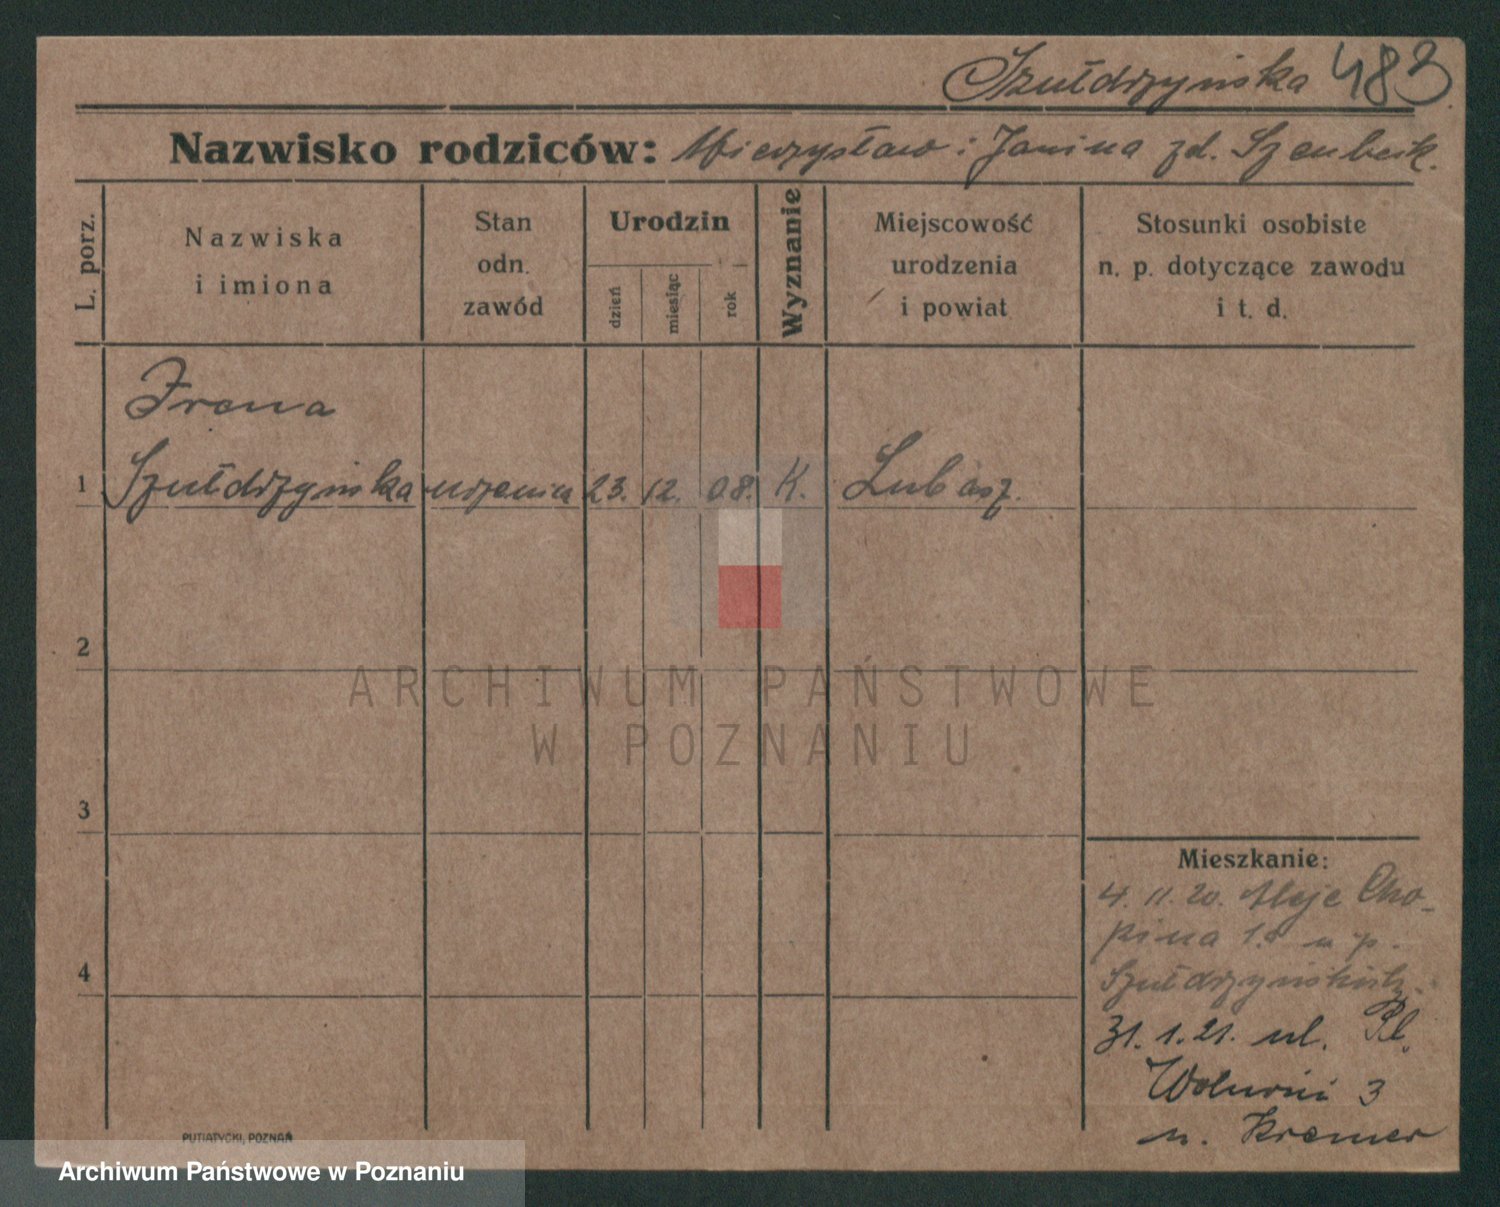 Szułdrzyńska 483
Nazwisko rodziców: Mieczysław i Janina zd. Szenbeck.
L. porz.
Nazwiska
i imiona
Stan
odn.
zawód
Urodzin
dzień
miesiąc
rok
Wyznanie
Miejscowość
urodzenia
i powiat
Stosunki osobiste
n. p. dotyczące zawodu
i t. d.
Irena
1 Szułdrzyńska uczenica 23. 12. 08. K. Lubasz.
2
ARCHIWUM PAŃSTWOWE
W POZNANIU
3
4
Mieszkanie:
4. 11. 20. Aleje Cho-
pina 1. u p.
31. 1. 21. ul. Pl.
Wolności 3
u. Kremer
PUTIATYCKI, POZNAŃ
Archiwum Państwowe w Poznaniu